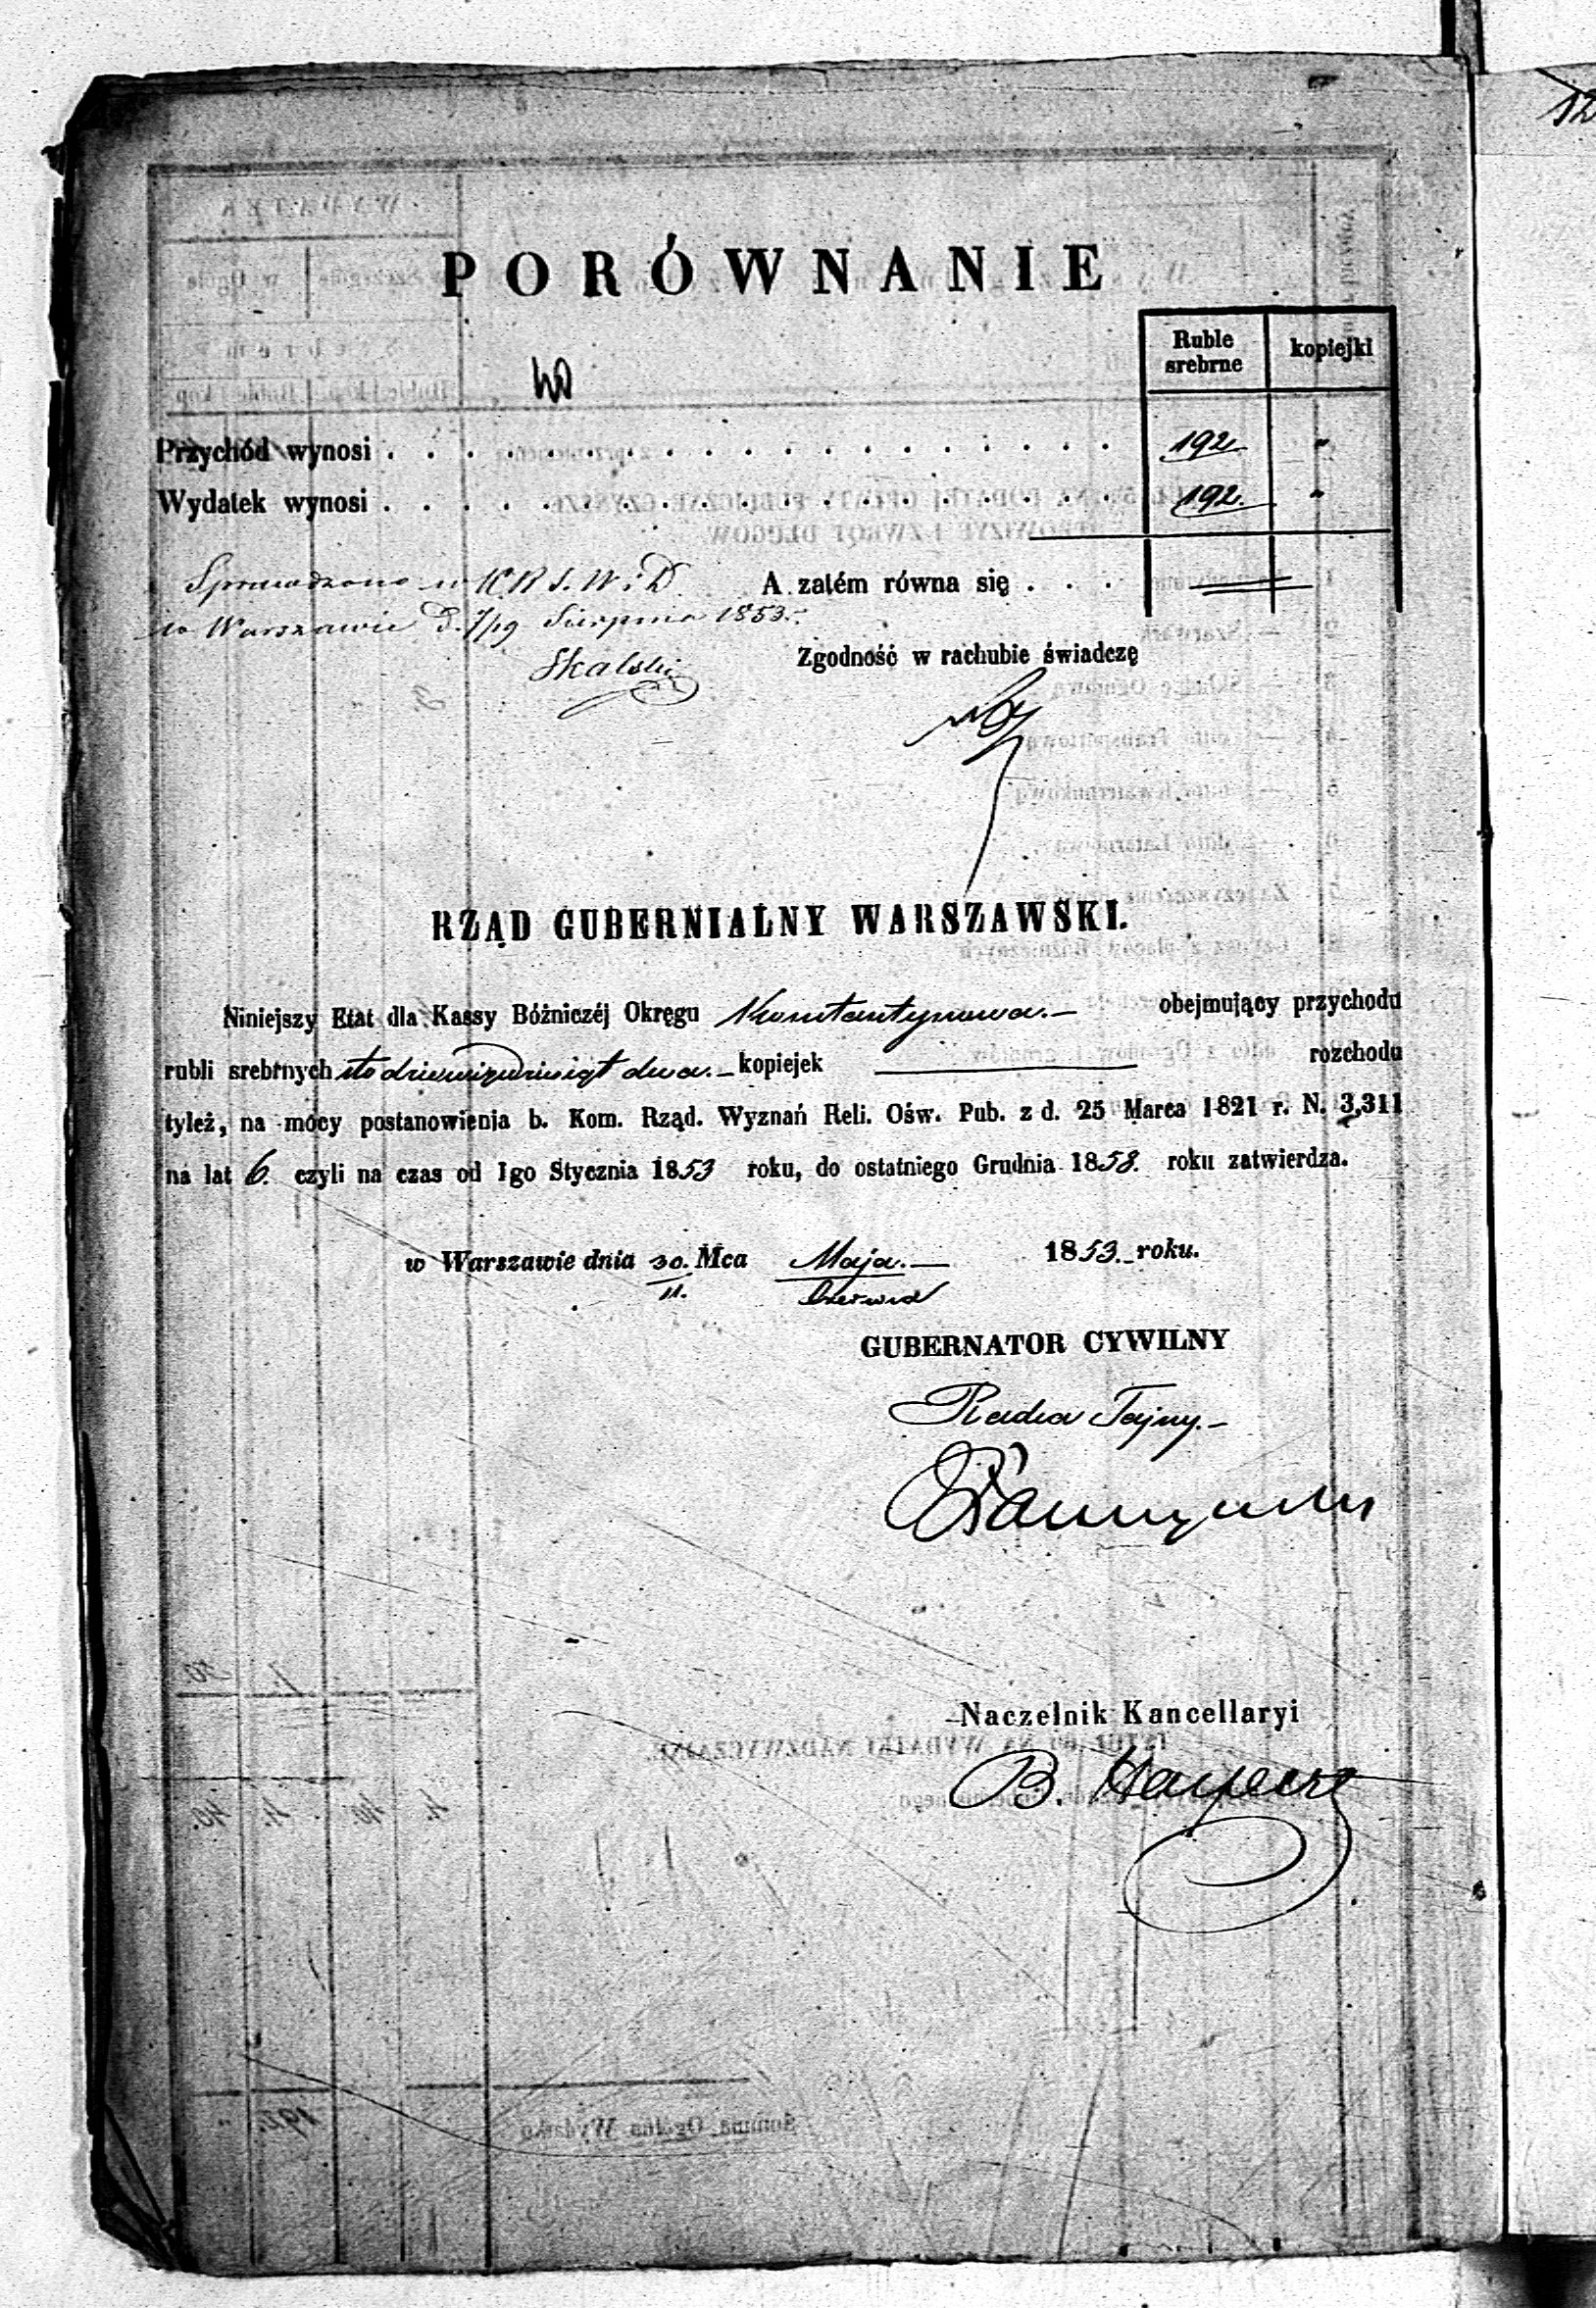 12
PORÓWNANIE
Ruble srebrne kopiejki
Przychód wynosi . . . . . . . . . . . . . . . . . . . 192. "
Wydatek wynosi . . . . . . . . . . . . . . . . . . . 192. "
Sprawdzono w K R S. W. i D. A zatém równa się . . .
w Warszawie d. 7/19 Sierpnia 1853.
Skalski
Zgodność w rachubie świadczę
RZĄD GUBERNIALNY WARSZAWSKI.
Niniejszy Etat dla Kassy Bóżniczéj Okręgu Konstantynowa.— obejmujący przychodu
rubli srebrnych sto dziewięćdziesiąt dwa.— kopiejek ——— rozchodu
tyleż, na mocy postanowienia b. Kom. Rząd. Wyznań Reli. Ośw. Pub. z d. 25 Marca 1821 r. N. 3,311
na lat 6. czyli na czas od 1go Stycznia 1853 roku, do ostatniego Grudnia 1858. roku zatwierdza.
w Warszawie dnia 30. Mca Maja.— 1853. roku.
11. Czerwca
GUBERNATOR CYWILNY
Radca Tajny.—
Naczelnik Kancellaryi
B.